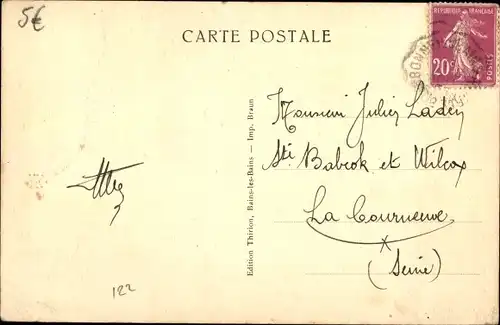 5€
CARTE POSTALE
REPUBLIQUE FRANÇAISE
20c
POSTES
BONN
Monsieur Julien Ladey
Sté Babcok et Wilcox
La Courneuve
(Seine)
Edition Thirion, Bains-les-Bains — Imp. Braun
122